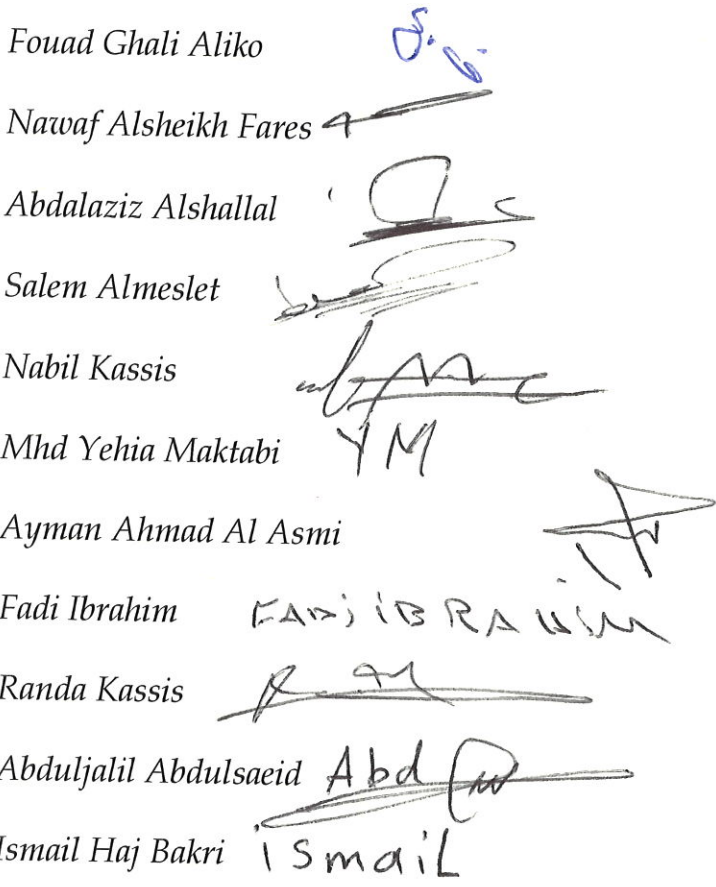 Fouad Ghali Aliko
Nawaf Alsheikh Fares
Abdalaziz Alshallal
Salem Almeslet
Nabil Kassis
Mhd Yehia Maktabi YM
Ayman Ahmad Al Asmi
Fadi Ibrahim FADi iBRAHiM
Randa Kassis
Abduljalil Abdulsaeid Abd
Ismail Haj Bakri iSmaiL